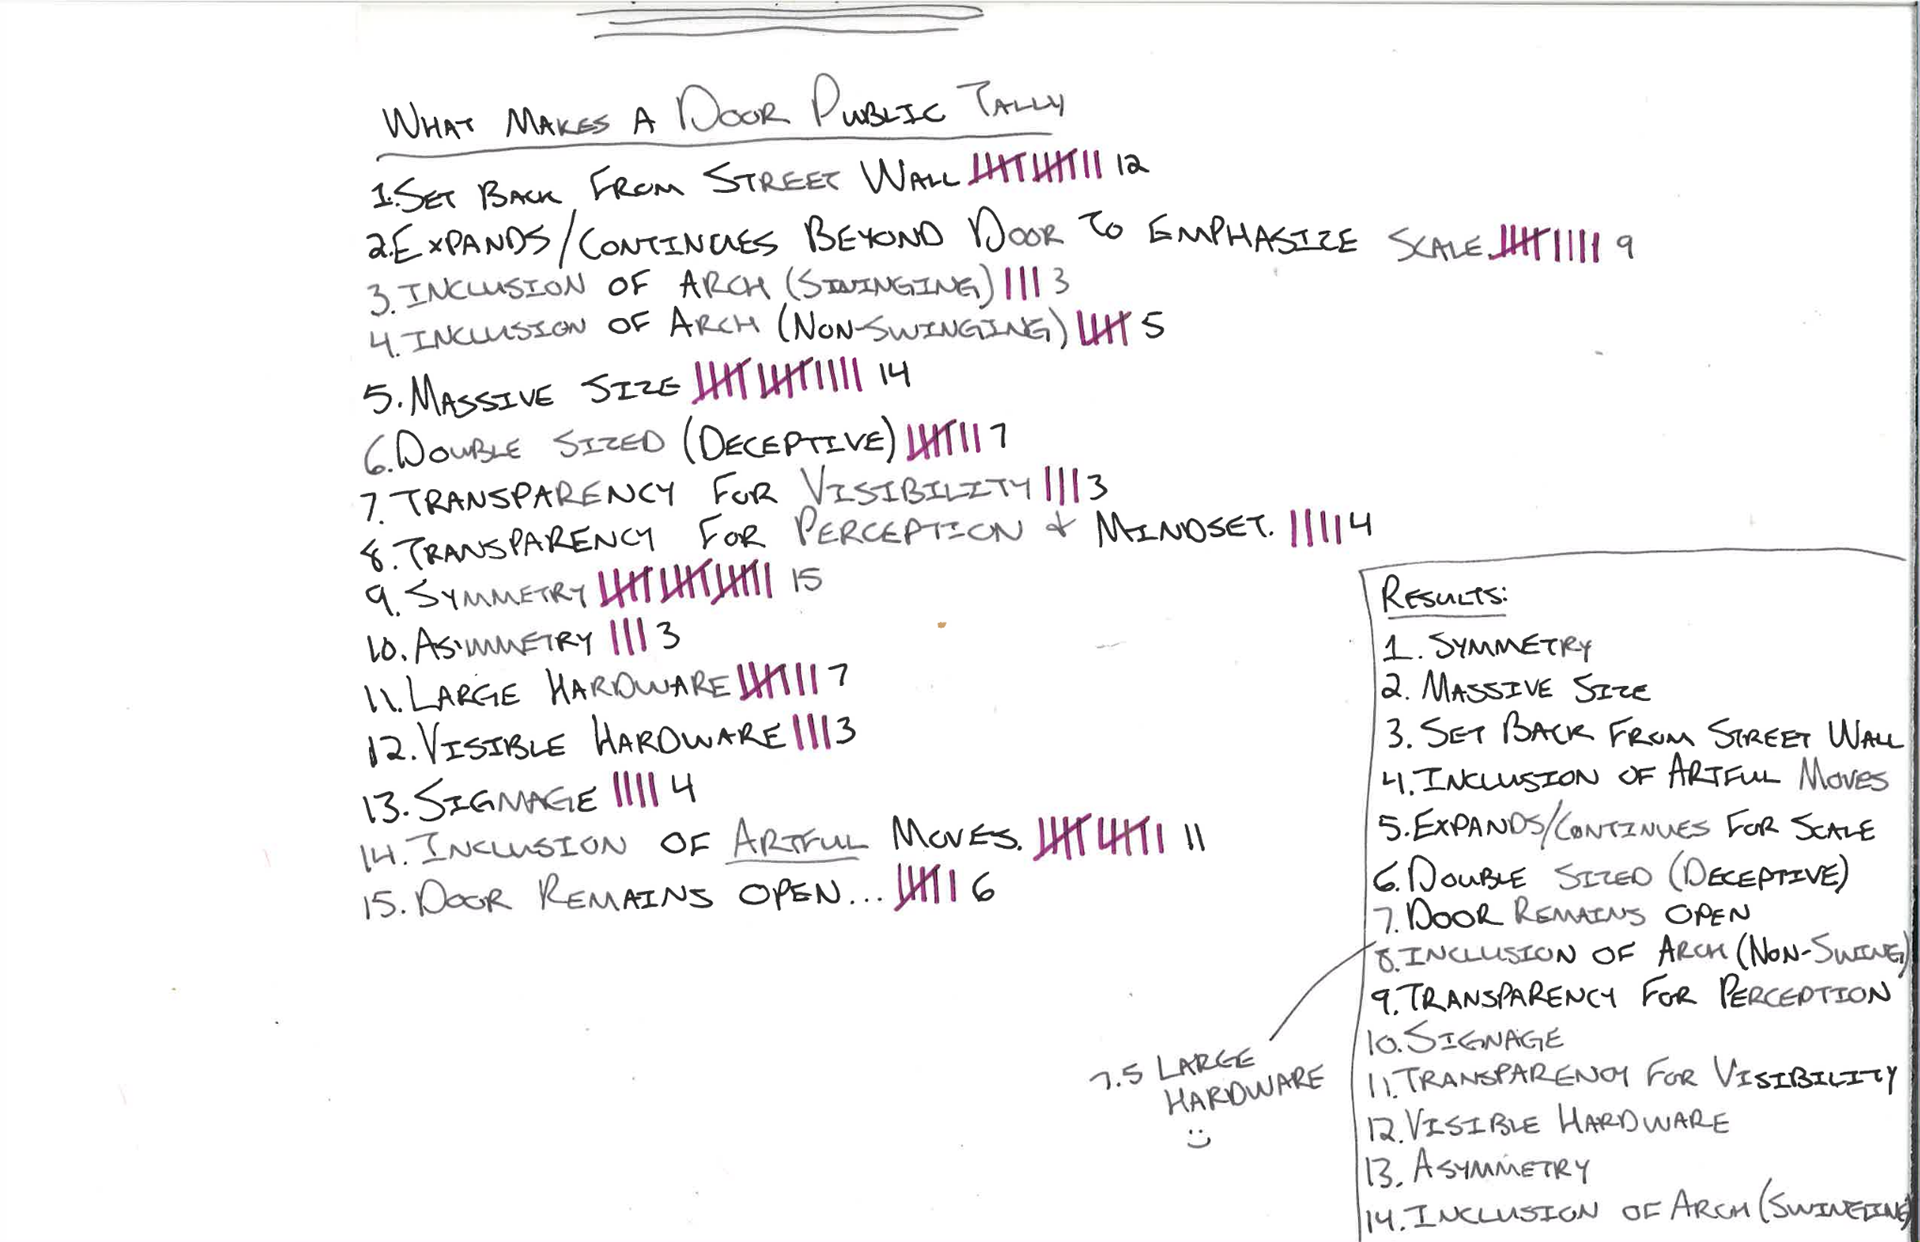 WHAT MAKES A DOOR PUBLIC TALLY
1. SET BACK FROM STREET WALL 12
2. EXPANDS/CONTINUES BEYOND DOOR TO EMPHASIZE SCALE. 9
3. INCLUSION OF ARCH (SWINGING) 3
4. INCLUSION OF ARCH (NON-SWINGING) 5
5. MASSIVE SIZE 14
6. DOUBLE SIZED (DECEPTIVE) 7
7. TRANSPARENCY FOR VISIBILITY 3
8. TRANSPARENCY FOR PERCEPTION & MINDSET. 4
9. SYMMETRY 15
10. ASIMMETRY 3
11. LARGE HARDWARE 7
12. VISIBLE HARDWARE 3
13. SIGNAGE 4
14. INCLUSION OF ARTFUL MOVES. 11
15. DOOR REMAINS OPEN... 6
RESULTS:
1. SYMMETRY
2. MASSIVE SIZE
3. SET BACK FROM STREET WALL
4. INCLUSION OF ARTFUL MOVES
5. EXPANDS/CONTINUES FOR SCALE
6. DOUBLE SIZED (DECEPTIVE)
7. DOOR REMAINS OPEN
7.5 LARGE
HARDWARE
8. INCLUSION OF ARCH (NON-SWING)
9. TRANSPARENCY FOR PERCEPTION
10. SIGNAGE
11. TRANSPARENCY FOR VISIBILITY
12. VISIBLE HARDWARE
13. ASYMMETRY
14. INCLUSION OF ARCH (SWINGING)